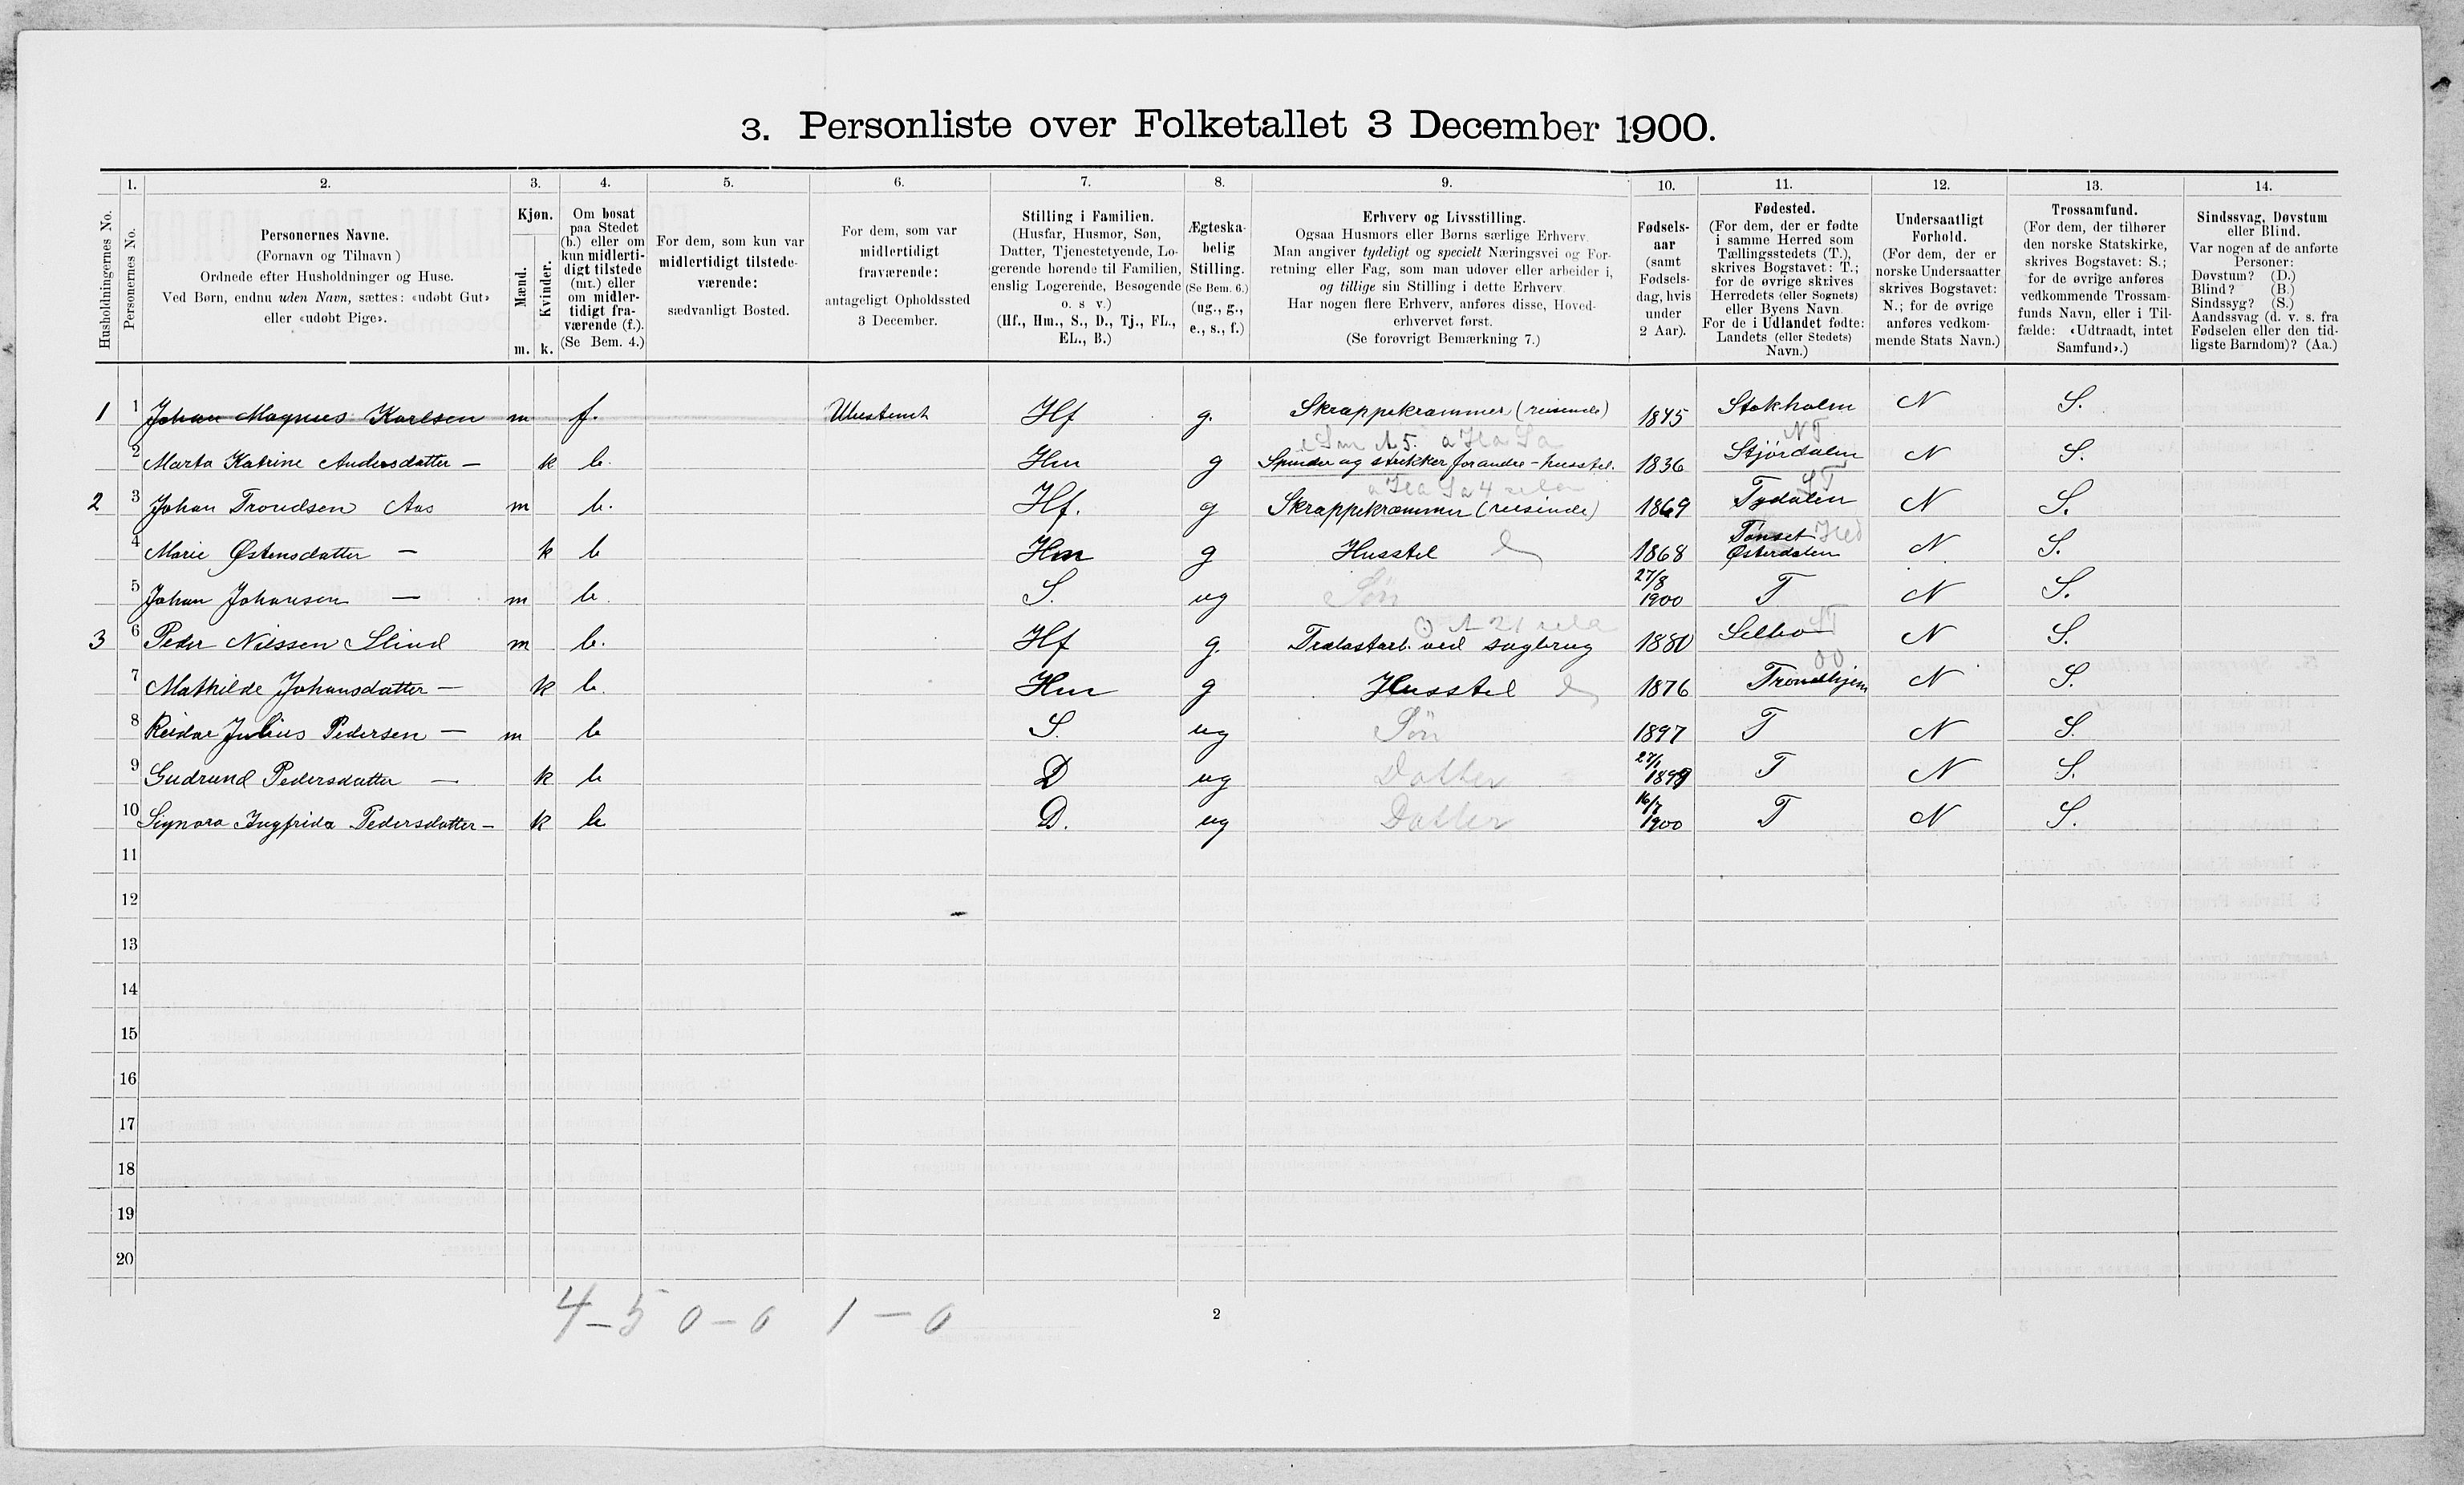 3. Personliste over Folketallet 3 December 1900.
1. 2. 3. 4. 5. 6. 7. 8. 9. 10. 11. 12. 13. 14.
Husholdningernes No.
Personernes No.
Personernes Navne.
(Fornavn og Tilnavn)
Ordnede efter Husholdninger og Huse.
Ved Børn, endnu uden Navn, sættes: «udøbt Gut»
eller «udøbt Pige».
Kjøn.
Mænd.
Kvinder.
m. k.
Om bosat
paa Stedet
(b.) eller om
kun midlerti-
digt tilstede
(mt.) eller
om midler-
tidigt fra-
værende (f.).
(Se Bem. 4.)
For dem, som kun var
midlertidigt tilstede-
værende:
sædvanligt Bosted.
For dem, som var
midlertidigt
fraværende:
antageligt Opholdssted
3 December.
Stilling i Familien.
(Husfar, Husmor, Søn,
Datter, Tjenestetyende, Lo-
gerende hørende til Familien,
enslig Logerende, Besøgende
o. s v.)
(Hf., Hm., S., D., Tj., FL.,
EL., B.)
Ægteska-
belig
Stilling.
(Se Bem. 6.)
(ug., g.,
e., s., f.)
Erhverv og Livsstilling.
Ogsaa Husmors eller Børns særlige Erhverv.
Man angiver tydeligt og specielt Næringsvei og For-
retning eller Fag, som man udøver eller arbeider i,
og tillige sin Stilling i dette Erhverv.
Har nogen flere Erhverv, anføres disse, Hoved-
erhvervet først.
(Se forøvrigt Bemærkning 7.)
Fødsels-
aar
(samt
Fødsels-
dag, hvis
under
2 Aar).
Fødested.
(For dem, der er fødte
i samme Herred som
Tællingsstedets (T.),
skrives Bogstavet: T.;
for de øvrige skrives
Herredets (eller Sognets)
eller Byens Navn.
For de i Udlandet fødte:
Landets (eller Stedets)
Navn.)
Undersaatligt
Forhold.
(For dem, der er
norske Undersaatter,
skrives Bogstavet:
N.; for de øvrige
anføres vedkom-
mende Stats Navn.)
Trossamfund.
(For dem, der tilhører
den norske Statskirke,
skrives Bogstavet: S.;
for de øvrige anføres
vedkommende Trossam-
funds Navn, eller i Til-
fælde: «Udtraadt, intet
Samfund».)
Sindssvag, Døvstum
eller Blind.
Var nogen af de anførte
Personer:
Døvstum? (D.)
Blind? (B.)
Sindssyg? (S.)
Aandssvag (d. v. s. fra
Fødselen eller den tid-
ligste Barndom)? (Aa.)
1 1 Johan Magnus Karlsen m f. Ubestemt Hf g. Skrappekræmmer (reisende) 1845 Stokholm N S.
NT
2 Marta Katrine Andersdatter — k b. Hm g Spinder og strikker for andre - husstel. 1836 Stjørdalen N S.
ST
2 3 Johan Trondsen Aas m b. Hf. g Skrappekræmmer (reisende) 1869 Tydalen N S.
4 Marie Østensdatter — k b Hm g Husstel 1868 Tønset Hed Østerdalen N S.
5 Johan Johansen — m b. S. ug Søn 27/8 1900 T N S.
3 6 Peder Nilssen Slind m b. Hf g. Trælastarb. ved sagbrug 1880 Selbo ST N S.
7 Mathilde Johansdatter — k b. Hm g Husstel 1876 Trondhjem N S.
8 Reidar Julius Pedersen — m b S. ug Søn 1897 T N S.
9 Gudrund Pedersdatter — k b D ug Datter 27/1 1899 T N S.
10 Signora Ingfrida Pedersdatter — k b D. ug Datter 16/7 1900 T N S.
11
12
13
14
15
16
17
18
19
20
4 – 5 0 – 0 1 – 0
2